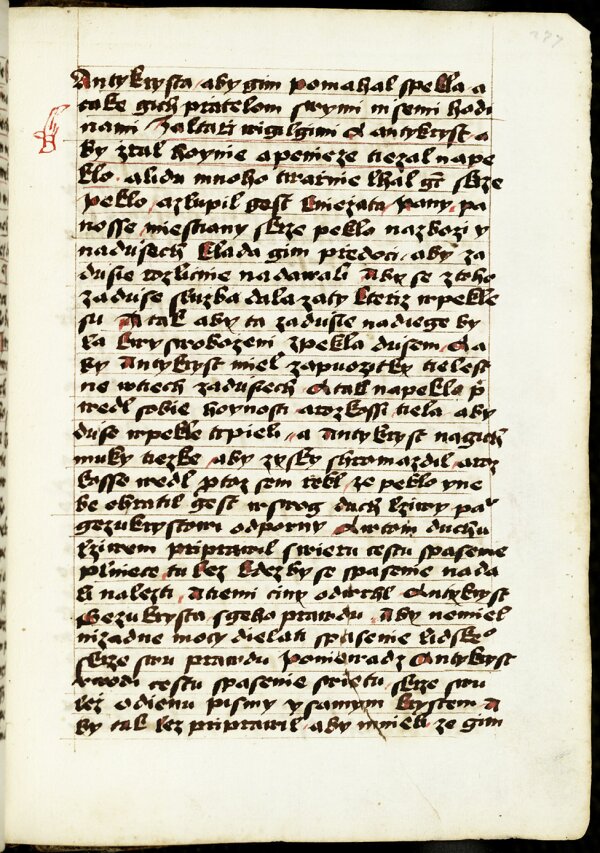 Antykrysta aby gim pomahal spekla a
take gich pratelom swymi msemi hodi
nami zaltari wigilgimi A antykryst a
by zral hoynie a penieze tiezal na pe
klo a lidu mnoho twarnie lhal gt skrze
peklo azlupil gest kniezata pany pa
nosse miestiany skrze peklo nazbozi y
nadusech klada gim predoci aby za
dusie rozlicnie nadawali Aby se z toho
zaduse sluzba dala zaty kteriz wpekle
su A tak aby ta zadusie nadiege by
la k wyswobozeni zpekla dusem A a
by Antykryst miel zapuozitky tielest
ne wtiech zadusiech A tak na peklo p
wedl sobie hoynost a rozkossi tiela aby
duse wpekle trpieli a Antykryst nagich
muky tiezke aby zysky shromazdil a roz
kosse wedl ptoz sem rekl ze peklo yne
be obratil gest wswog duch lziwy pa
gezukrystowi odporny A wtom duchu
lziwem priprawil swietu cestu spasenie
plniece tu lez kdezby se spasenie nada
li nalezti A tiemi ciny odwrhl Antykryst
Gezukrysta sgeho prawdu Aby nemiel
nizadne mocy dielati spasenie lidske
skrze swu prawdu Poniewadz Antykryst
zwodi cestu spasenie swietu skrze swu
lez odienu pismy y samym krystem A
by tak lez priprawil aby mnieli ze gim